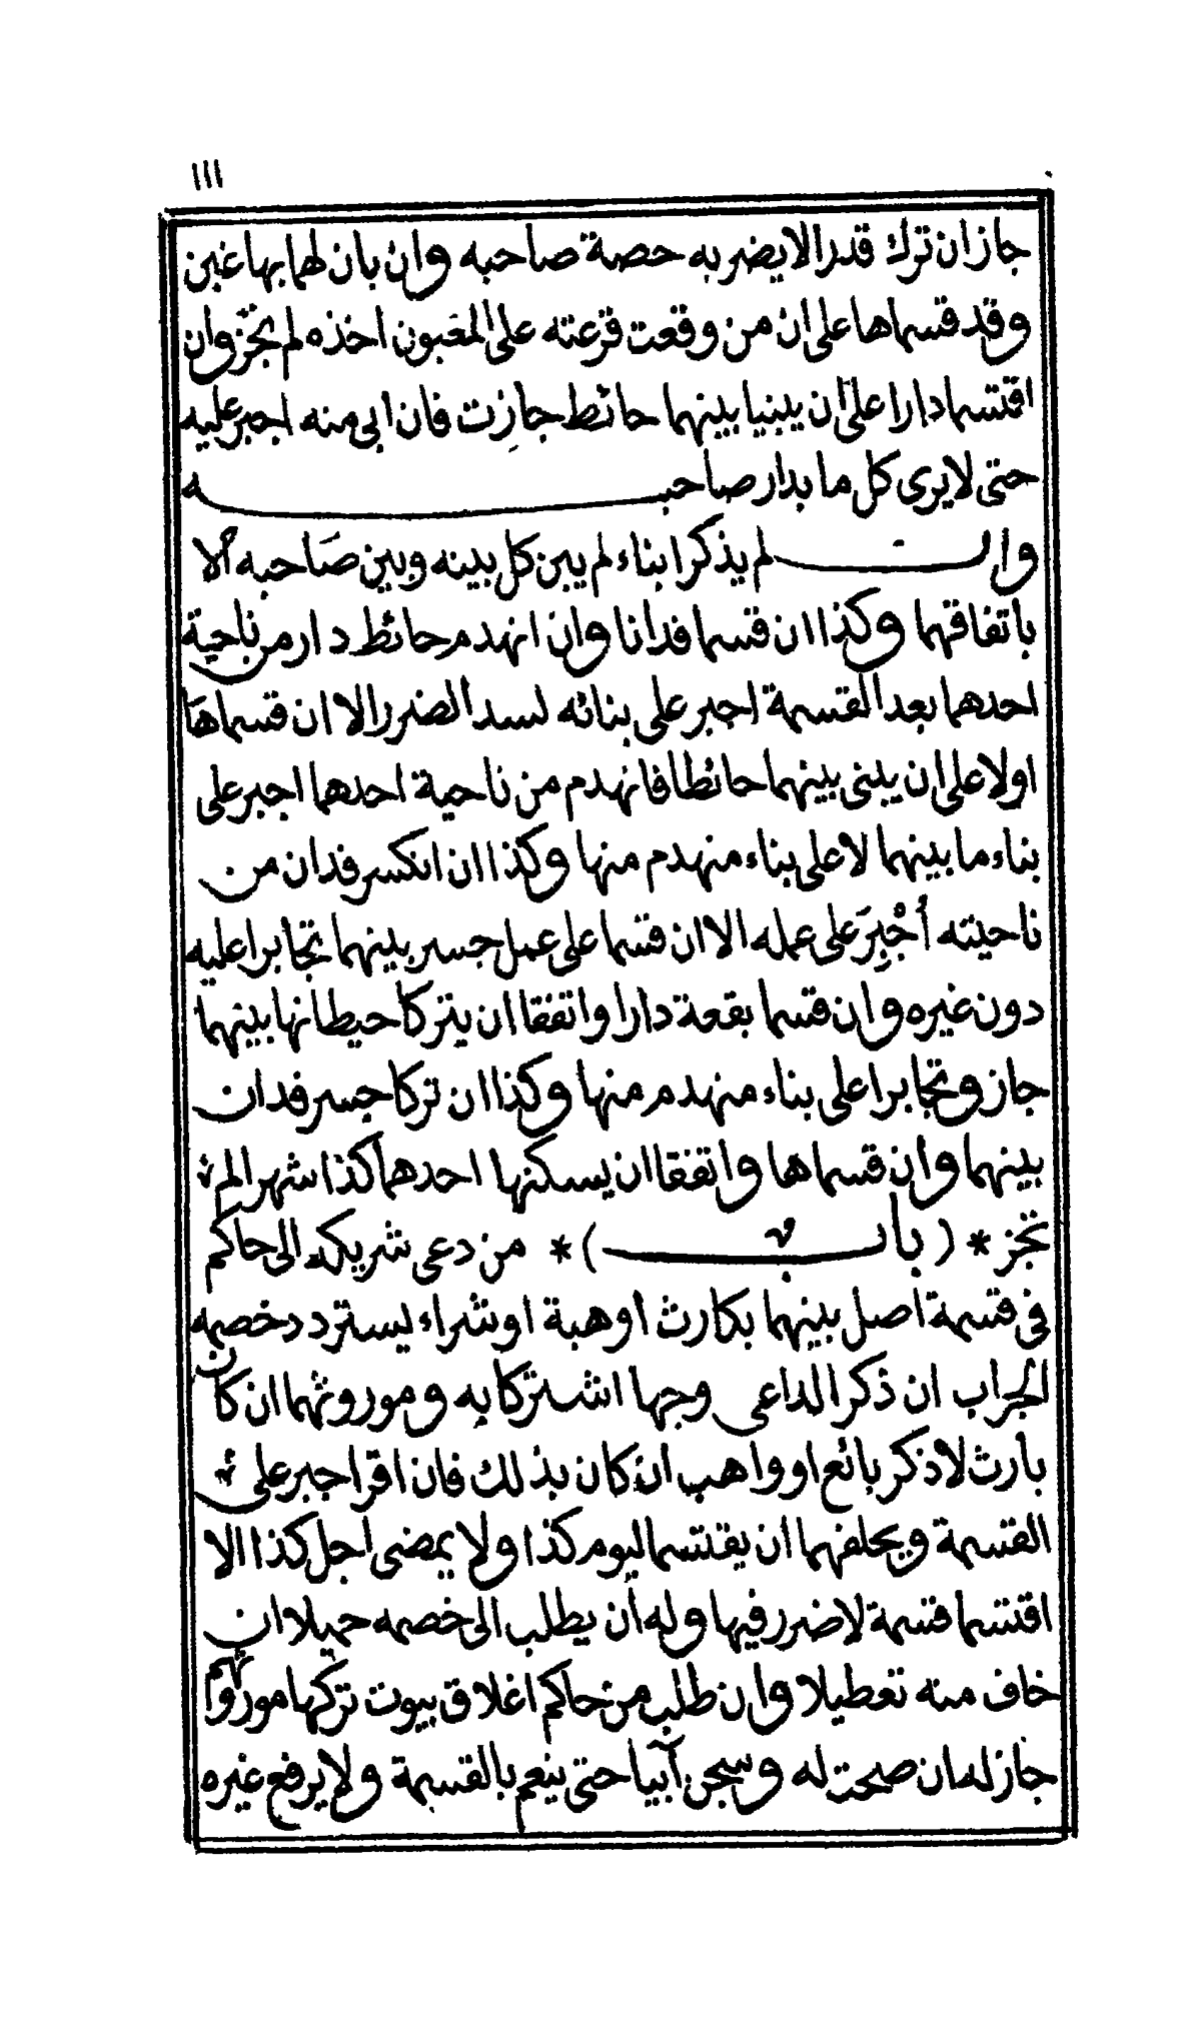 ١١١
جاز ان ترك قدرا لا يضر به حصة صاحبه وان بان لهما بها غبن
وقد قسماها على ان من وقعت قرعته على المغبون اخذه لم تجز وان
اقتسما دارا على ان يبنيا بينهما حائط جازت فان ابى منه اجبر عليه
حتى لا يرى كل ما بدار صاحبه
وان لم يذكرا بناء لم يبن كل بينه وبين صَاحبه الا
باتفاقهما وكذا ان قسما فدانا وان انهدم حائط دار من ناحية
احدهما بعد القسمة اجبر على بنائه لسد الضرر الا ان قسماهَا
اولا على ان يبنى بينهما حائطا فانهدم من ناحية احدهما اجبر على
بناء ما بينهما لا على بناء منهدم منها وكذا ان انكسر فدان من
ناحيته أُجْبِرَ على عمله الا ان قسما على عمل جسر بينهما تجابرا عليه
دون غيره وان قسما بقعة دارا واتفقا ان يتركا حيطانها بينهما
جاز وتجابرا على بناء منهدم منها وكذا ان تركا جسر فدان
بينهما وان قسماها واتفقا ان يسكنها احدهما كذا شهرا لم
تجز * ( باب ) * من دعى شريكه الى حاكم
فى قسمة اصل بينهما بكارث او هبة او شراء ليستردد خصمه
الجراب ان ذكر الداعى وجها اشتركا به وموروثهما ان كان
بارث لا ذكر بائع او واهب ان كان بذلك فان اقر اجبر على
القسمة ويحلفهما ان يقتسما اليوم كذا ولا يمضى اجل كذا الا
اقتسما قسمة لا ضرر فيها وله ان يطلب الى خصمه حميلا ان
خاف منه تعطيلا وان طلب من حاكم اغلاق بيوت تركها موروثهم
جاز له ان صحت له وسجن آبيا حتى ينعم بالقسمة ولا يرفع غيره